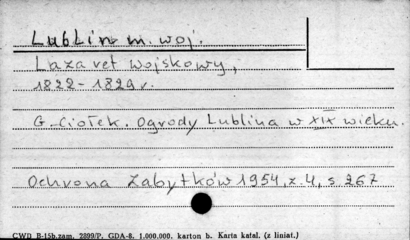 Lublin m. woj.
Lazaret Wojskowy,
1822-1829 r.
G. Ciołek. Ogrody Lublina w XIX wieku.
Ochrona Zabytków 1954, z. 4, s 267
CWD B-15b.zam. 2899/P. GDA-8. 1.000.000. karton b. Karta katal. (z liniat.)